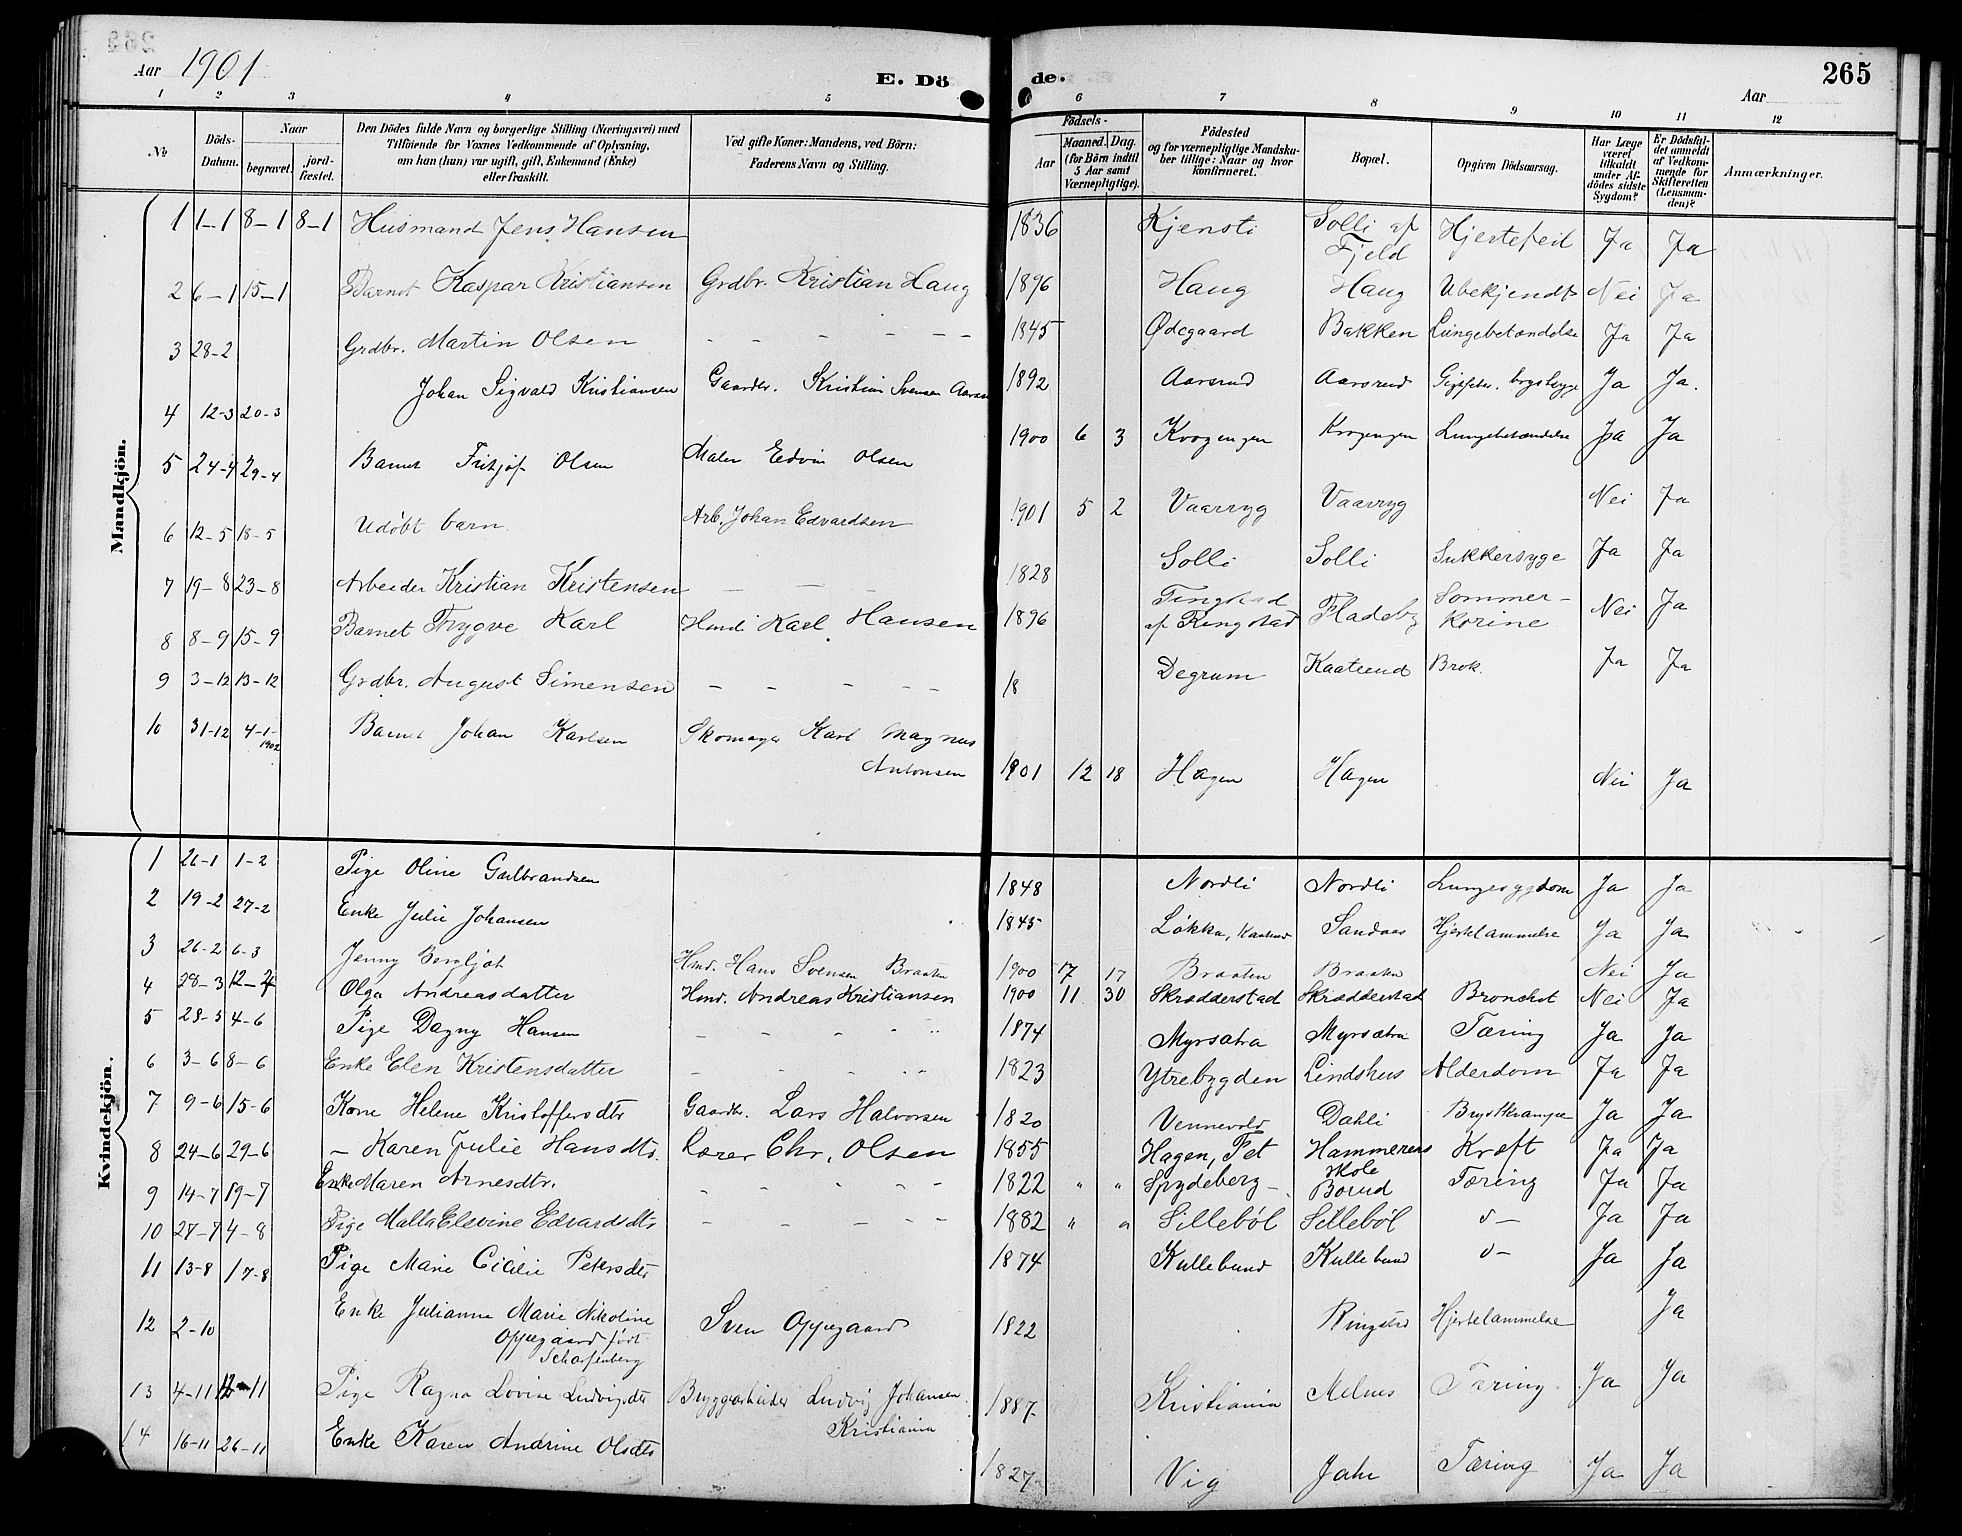 Aar 1901
E. Dö de.
265
Aar
1 2 3 4 5 6 7 8 9 10 11 12
No
Döds-Datum.
Naar
begravet.
jord-fæstet.
Den Dödes fulde Navn og borgerlige Stilling (Næringsvei) med
Tilföiende for Voxnes Vedkommende af Oplysning,
om han (hun) var ugift, gift, Enkemand (Enke)
eller fraskilt.
Ved gifte Koner: Mandens, ved Börn:
Faderens Navn og Stilling.
Födsels-
Aar
Maaned. Dag.
(for Börn indtil
5 Aar samt
Værnepligtige).
Födested
og for værnepligtige Mandska-
ber tillige: Naar og hvor
konfirmeret.
Bopæl.
Opgiven Dödsaarsag.
Har Læge
været
tilkaldt
under Af-
dödes sidste
Sygdom?
Er Dödsfal-
det anmeldt
af Vedkom-
mende for
Skifteretten
(Lensman-
den)?
Anmærkninger.
Mandkjön.
1 1-1 8-1 8-1 Husmand Jens Hansen 1836 Kjensli Solli af Fjeld Hjertefeil Ja Ja
2 6-1 15-1 Barnet Kaspar Kristiansen Grdbr. Kristian Haug 1896 Haug Haug Ubekjendt Nei Ja
3 28-2 Grdbr. Martin Olsen - - - - - 1845 Ødegaard Bakken Lungebetændelse Ja Ja
4 12-3 20-3 Johan Sigvald Kristiansen Gaardbr. Kristian Svensen 1892 Aarsrud Aarsrud Ja Ja.
5 24-4 29-4 Barnet Fritjof Olsen Maler Edvin Olsen 1900 6 3 Krogengen Krogengen Lungebetændelse Ja Ja
6 12-5 18-5 Udøbt barn Arb. Johan Edvardsen 1901 5 2 Vaarryg Vaarryg Nei Ja
7 19-8 23-8 Arbeider Kristian Kristensen - - - 1828 Solli Solli Sukkersyge Ja Ja
8 8-9 15-9 Barnet Trygve Karl Hmd. Karl Hansen 1896 Tingstad af Ringstad Fladeby Sommer-korine Nei Ja
9 3-12 13-12 Grdbr. August Simensen - - - - - 18 Degrum Kaaterud Brok. Ja Ja
10 31-12 4-1-1902 Barnet Johan Karlsen Skomager Karl Magnus
Antonsen 1901 12 18 Hagen Hagen Nei Ja
Kvindekjön.
1 26-1 1-2 Pige Oline Gulbrandsen 1848 Nordli Nordli Lungesygdom Ja Ja
2 19-2 27-2 Enke Julie Johansen 1845 Løkka, Kaaterud Sandaas Hjertelammelse Ja Ja
3 26-2 6-3 Jenny Bergljot Hmd. Hans Svensen Braaten 1900 17 Braaten Braaten Nei Ja
4 28-3 12-4 Olga Andreasdatter Hmd. Andreas Kristiansen 1900 11 30 Skrædderstad Skrædderstad Bronchit Nei Ja
5 28-5 4-6 Pige Dagny Hansen - - - - - 1874 Myrsætra Myrsætra Tæring Ja Ja
6 3-6 8-6 Enke Elen Kristensdatter - - - - - 1823 Ytrebygden Lindshus Alderdom Ja Ja
7 9-6 15-6 Kone Helene Kristoffersdtr Gaardbr. Lars Halvorsen 1820 Vennevold Dahli Brystkrampe Ja Ja
8 24-6 29-6 - Karen Julie Hansdtr. Lærer Chr. Olsen 1855 Hagen, Fet Hammerens skole Kræft Ja Ja
9 14-7 19-7 Enke Maren Arnesdtr. - - - - - 1822 " " Spydeberg - Borud Tæring Ja Ja
10 27-7 4-8 Pige Malla Elevine Edvardsdtr - - - - - 1882 " " Sillebøl Sillebøl d- Ja Ja
11 13-8 17-8 Pige Marie Cicilie Petersdtr 1874 Kullebund Kullebund d- Ja Ja
12 2-10 Enke Julianne Marie Nikoline
Oppegaard født
Scharfenberg Sven Oppegaard 1822 Ringstad Hjertelammelse Ja
13 4-11 12-11 Pige Ragna Lovise Ludvigsdtr Bryggearbeider Ludvig Johansen
Kristiania 1887 Kristiania Melnes Tæring Ja Ja
14 16-11 26-11 Enke Karen Andrine Olsdtr 1827 Vig Jahr Tæring Ja Ja